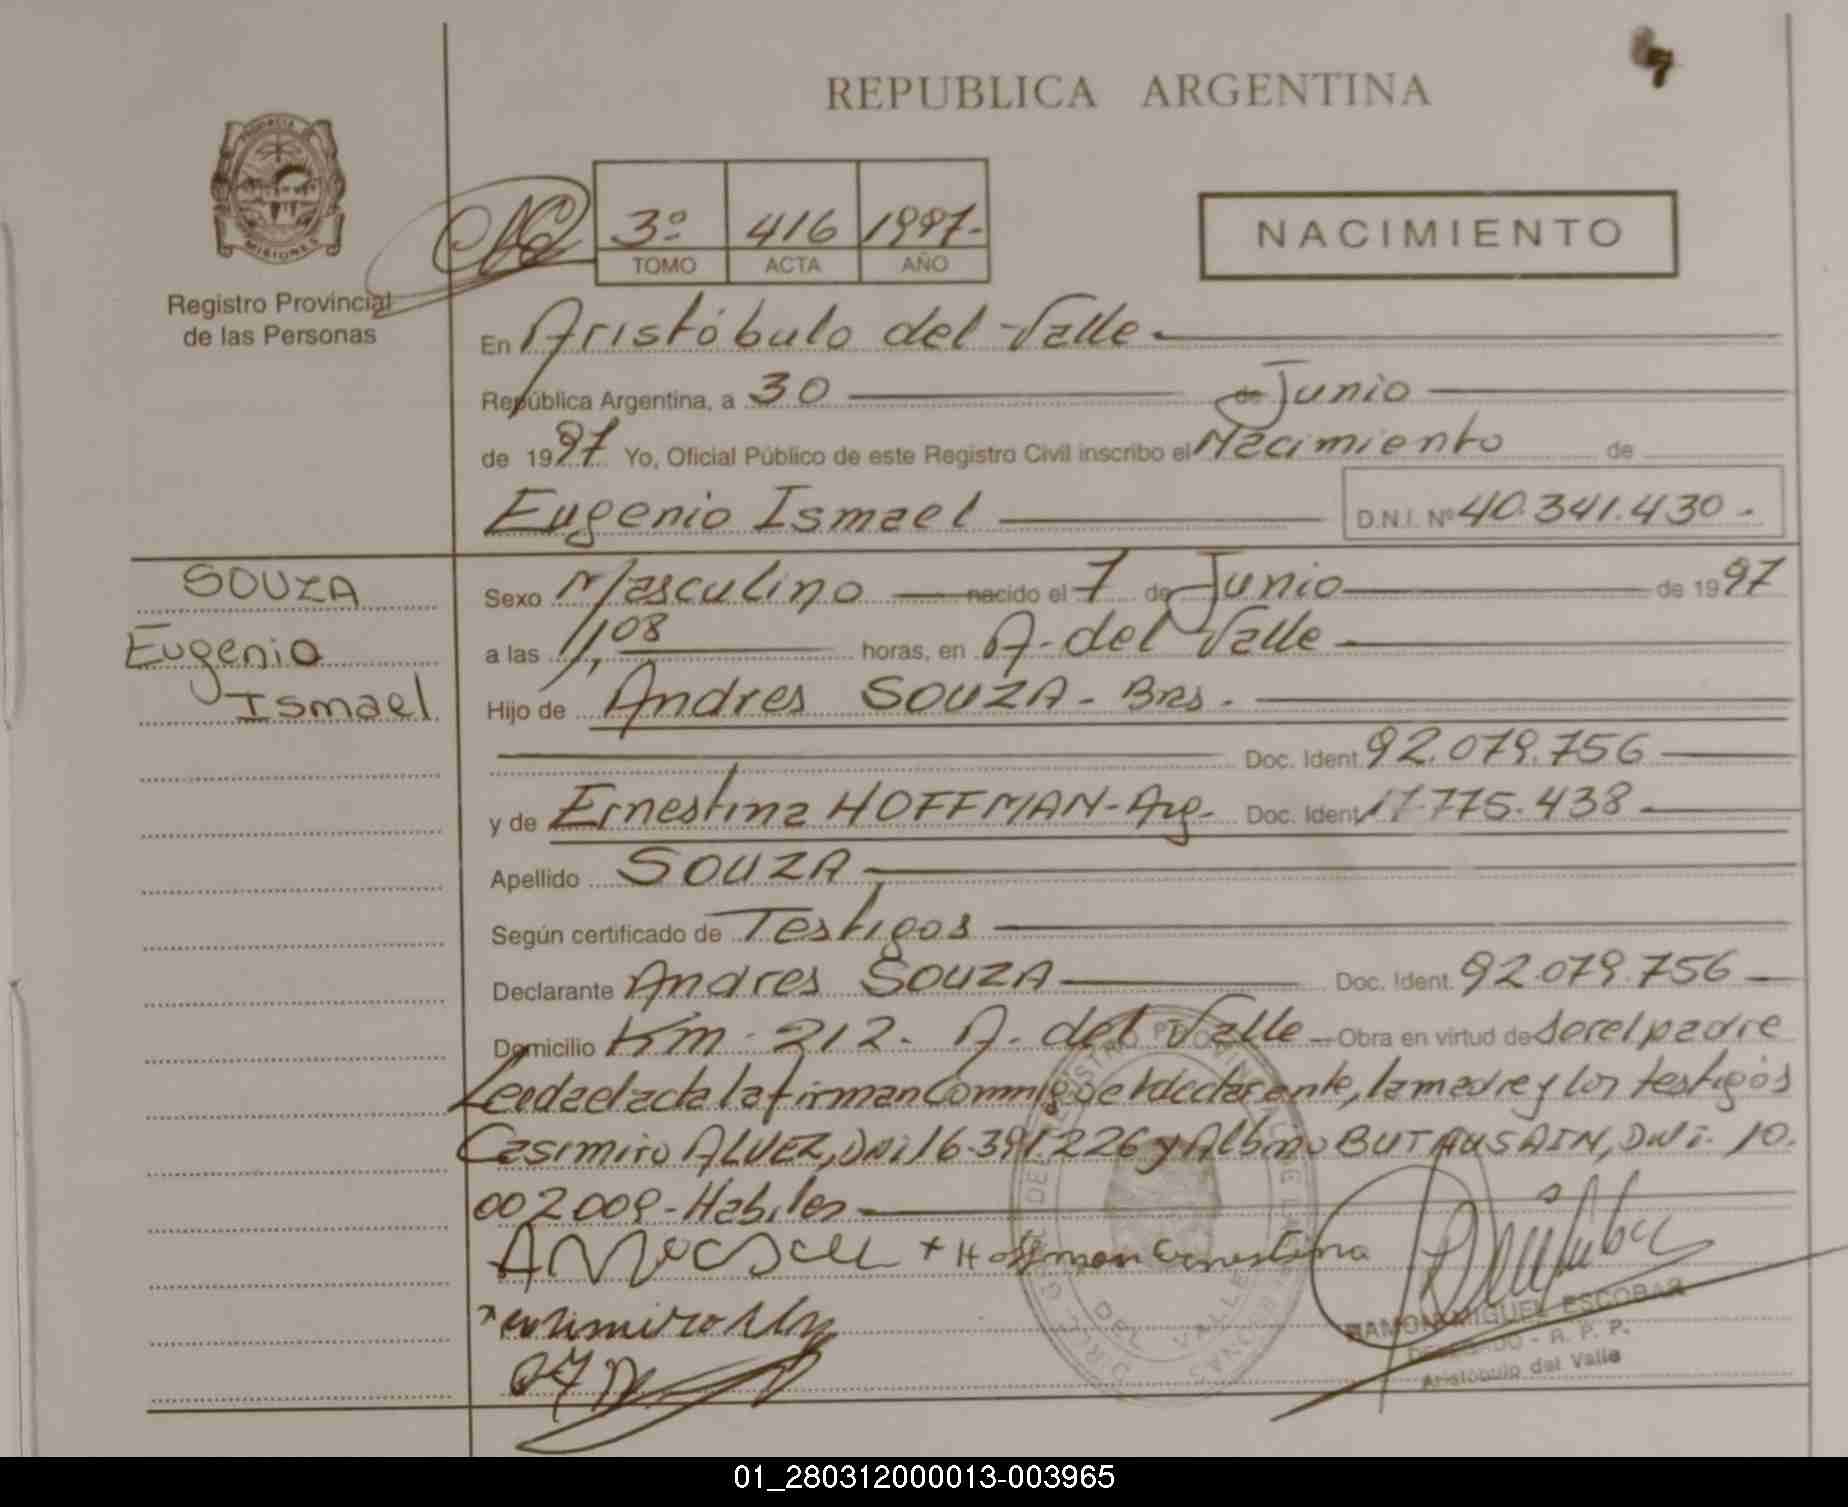 REPUBLICA ARGENTINA
PROVINCIA DE
MISIONES
Registro Provincial
de las Personas
3º 416 1997.-
TOMO ACTA AÑO
NACIMIENTO
En Aristóbulo del Valle
República Argentina, a 30 de Junio
de 1997 Yo, Oficial Público de este Registro Civil inscribo el Nacimiento de
Eugenio Ismael D.N.I. Nº 40.341.430.-
SOUZA
Eugenio
Ismael
Sexo Masculino nacido el 7 de Junio de 1997
a las 1,08 horas, en A. del Valle
Hijo de Andres SOUZA - Bras.
Doc. Ident. 92.079.756
y de Ernestina HOFFMAN - Arg. Doc. Ident. 17.775.438
Apellido SOUZA
Según certificado de Testigos
Declarante Andres SOUZA Doc. Ident. 92.079.756
Domicilio Km. 212. A. del Valle Obra en virtud de ser el padre
Leida el acta la firman Conmigo el declarante, la madre y los testigos
Casimiro ALVEZ, DNI 16.391.226 y Albino BUTHUSAIN, DNI. 10.
002009 - Habiles
+ Hoffman Ernestina
RAMON MIGUEL ESCOBAR
DELEGADO - R. P. P.
Aristóbulo del Valle
01_280312000013-003965